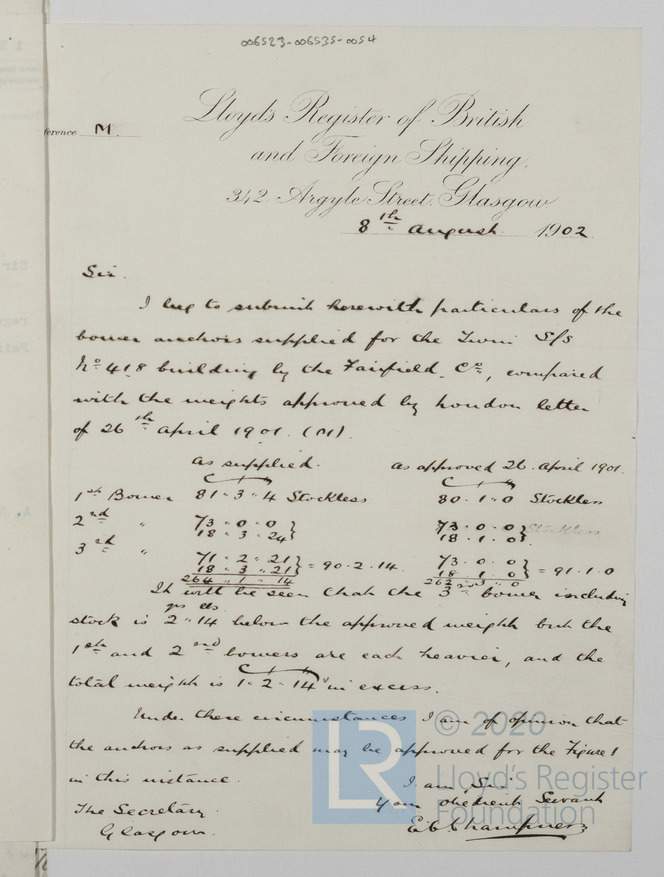 006523-006535-0054
ference M.
Lloyd's Register of British
and Foreign Shipping.
342, Argyle Street, Glasgow
8th August 1902
Sir.
I beg to submit herewith particulars of the
bower anchors supplied for the Twin S/S
No 418 building by the Fairfield Co., compared
with the weights approved by London letter
of 26th April 1901. (M).
As supplied. As approved 26 April 1901.
1st Bower 81 . 3 . 4 Stockless 80 . 1 . 0 Stockless
2nd " 73 . 0 . 0 } 73 . 0 . 0 } Stockless
18 . 3 . 24 } 18 . 1 . 0 }
3rd " 71 . 2 . 21 } = 90 . 2 . 14. 73 . 0 . 0 } = 91 . 1 . 0
18 . 3 . 21 } 18 . 1 . 0 }
264 . 1 . 14 262 . 3 . 0
It will be seen that the 3rd bower including
qrs lbs
stock is 2 . 14 below the approved weight but the
1st and 2nd bowers are each heavier, and the
total weight is 1 . 2 . 14 in excess.
Under these circumstances I am of opinion that
the anchors as supplied may be approved for the Figure 1
in this instance.
I am, Sir
Your obedient Servant
The Secretary.
Glasgow.
© 2020
LR
Lloyd's Register
Foundation